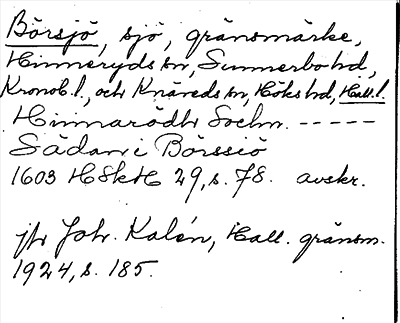 Börsjö, sjö, gränsmärke,
Hinneryds sn, Sunnerbo hd,
Kronob. l., och Knäreds sn, Höks hd, Hall. l.
Hinnarödh Sochn. -----
Sädan i Börssiö
1603 HSkH 29, s. 78. avskr.
jfr Joh. Kalén, Hall. gränsm.
1924, s. 185.